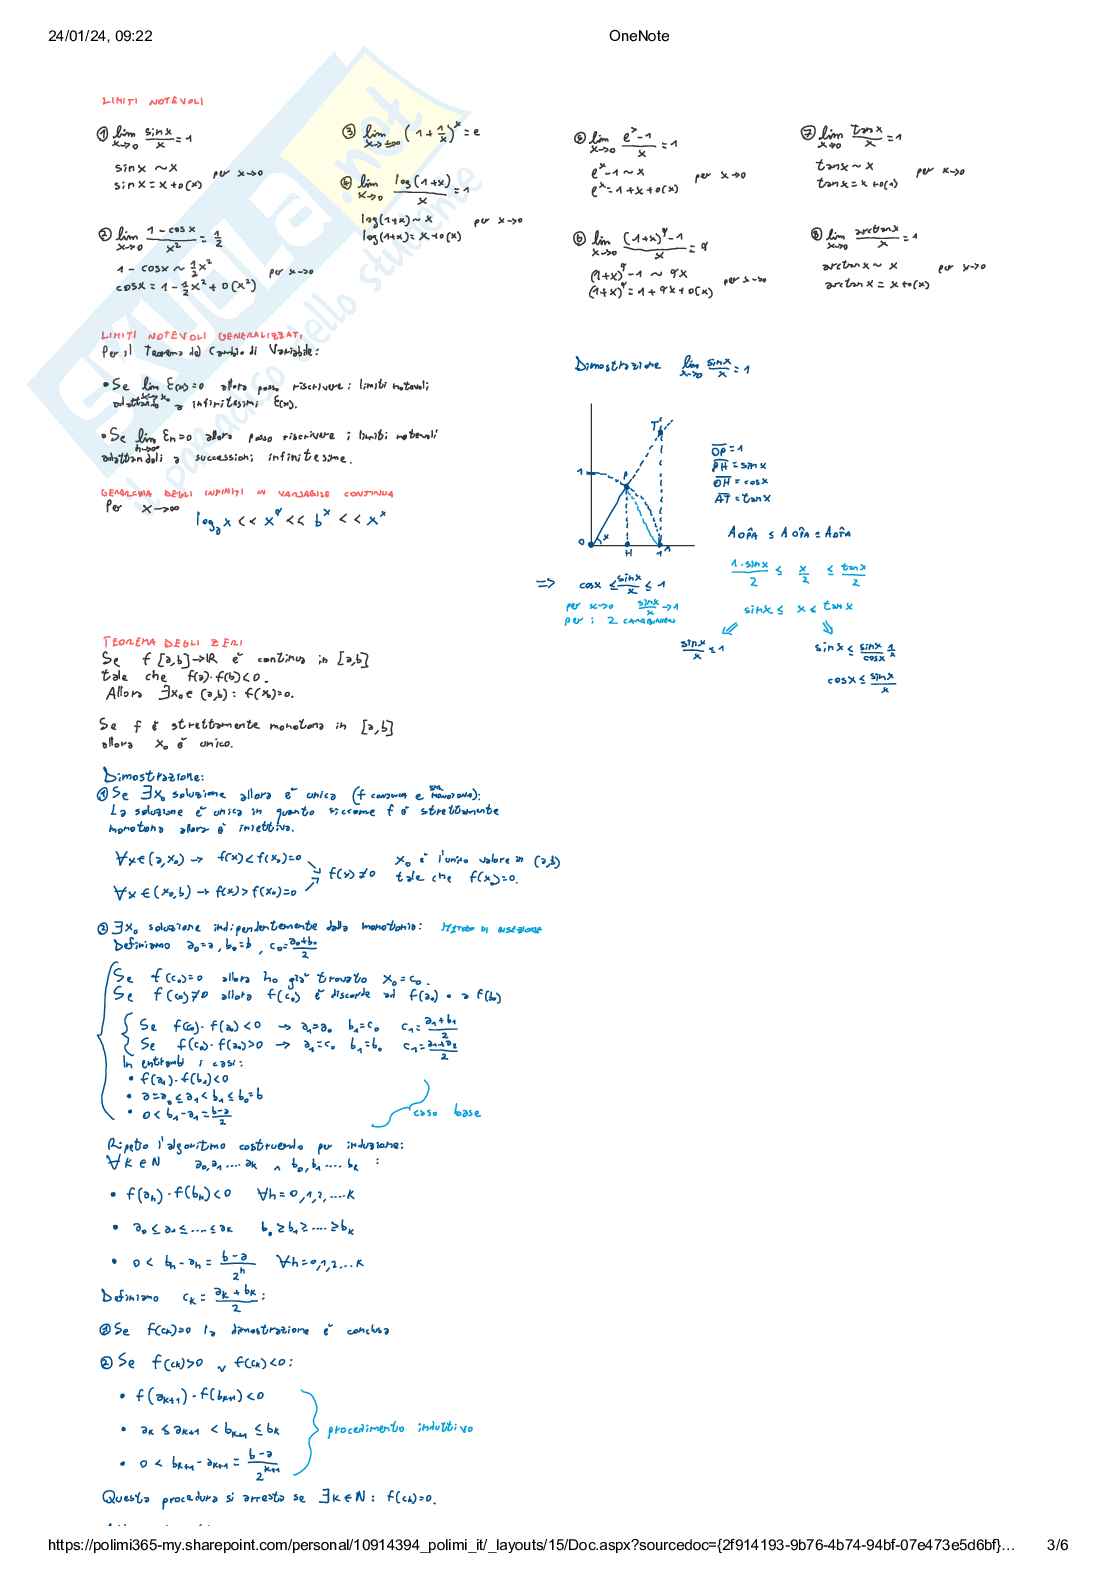 24/01/24, 09:22
OneNote
LIMITI NOTEVOLI
① lim x→0 sinx/x = 1
sinx ~ x
sinx = x + o(x)
per x→0
② lim x→0 (1 - cosx)/x² = 1/2
1 - cosx ~ 1/2 x²
cosx = 1 - 1/2 x² + o(x²)
per x→0
③ lim x→±∞ (1 + 1/x)^x = e
④ lim x→0 log(1+x)/x = 1
log(1+x) ~ x
log(1+x) = x + o(x)
per x→0
⑤ lim x→0 (e^x - 1)/x = 1
e^x - 1 ~ x
e^x = 1 + x + o(x)
per x→0
⑥ lim x→0 ((1+x)^α - 1)/x = α
(1+x)^α - 1 ~ αx
(1+x)^α = 1 + αx + o(x)
per x→0
⑦ lim x→0 tanx/x = 1
tanx ~ x
tanx = x + o(x)
per x→0
⑧ lim x→0 arctanx/x = 1
arctanx ~ x
arctanx = x + o(x)
per x→0
LIMITI NOTEVOLI GENERALIZZATI
Per il Teorema del Cambio di Variabile:
• Se lim x→x₀ ε(x)=0 allora posso riscrivere i limiti notevoli
adattando a infinitesimi ε(x).
• Se lim n→∞ εn=0 allora posso riscrivere i limiti notevoli
adattandoli a successioni infinitesime.
GERARCHIA DEGLI INFINITI IN VARIABILE CONTINUA
Per x→∞
logₐx << x^α << b^x << x^x
Dimostrazione lim x→0 sinx/x = 1
1
T
P
0
x
H
1
A
OP = 1
PH = sinx
OH = cosx
AT = tanx
A OPA ≤ A OPA ≤ A OTA
1·sinx/2 ≤ x/2 ≤ tanx/2
sinx ≤ x ≤ tanx
sinx/x ≤ 1
sinx ≤ sinx/cosx
cosx ≤ sinx/x
=> cosx ≤ sinx/x ≤ 1
per x→0 sinx/x → 1
per i 2 CARABINIERI
TEOREMA DEGLI ZERI
Se f [a,b]→IR è continua in [a,b]
tale che f(a)·f(b)<0.
Allora ∃x₀∈(a,b): f(x₀)=0.
Se f è strettamente monotona in [a,b]
allora x₀ è unico.
Dimostrazione:
① Se ∃x₀ soluzione allora è unica (f continua e monotona):
La soluzione è unica in quanto siccome f è strettamente
monotona allora è iniettiva.
∀x∈(a,x₀) → f(x)<f(x₀)=0
∀x∈(x₀,b) → f(x)>f(x₀)=0
f(x)≠0
x₀ è l'unico valore in (a,b)
tale che f(x₀)=0.
② ∃x₀ soluzione indipendentemente dalla monotonia: METODO DI BISEZIONE
Definiamo a₀=a, b₀=b, c₀=(a₀+b₀)/2
Se f(c₀)=0 allora ho già trovato x₀=c₀.
Se f(c₀)≠0 allora f(c₀) è discorde ad f(a₀) o a f(b₀)
Se f(c₀)·f(a₀)<0 → a₁=a₀ b₁=c₀ c₁=(a₁+b₁)/2
Se f(c₀)·f(a₀)>0 → a₁=c₀ b₁=b₀ c₁=(a₁+a₂)/2
In entrambi i casi:
• f(a₁)·f(b₁)<0
• a=a₀≤a₁<b₁≤b₀=b
• 0<b₁-a₁=(b-a)/2
caso base
Ripeto l'algoritmo costruendo per induzione:
∀k∈N a₀,a₁....ak ∧ b₀,b₁....bk :
• f(an)·f(bn)<0 ∀n=0,1,2,....k
• a₀≤a₁≤....≤ak b₀≥b₁≥....≥bk
• 0<bn-an=(b-a)/2^n ∀n=0,1,2...k
Definiamo ck=(ak+bk)/2:
① Se f(ck)=0 la dimostrazione è conclusa
② Se f(ck)>0 ∨ f(ck)<0:
• f(ak+1)·f(bk+1)<0
• ak≤ak+1<bk+1≤bk
• 0<bk+1-ak+1=(b-a)/2^(k+1)
procedimento induttivo
Questa procedura si arresta se ∃k∈N: f(ck)=0.
https://polimi365-my.sharepoint.com/personal/10914394_polimi_it/_layouts/15/Doc.aspx?sourcedoc={2f914193-9b76-4b74-94bf-07e473e5d6bf}…
3/6